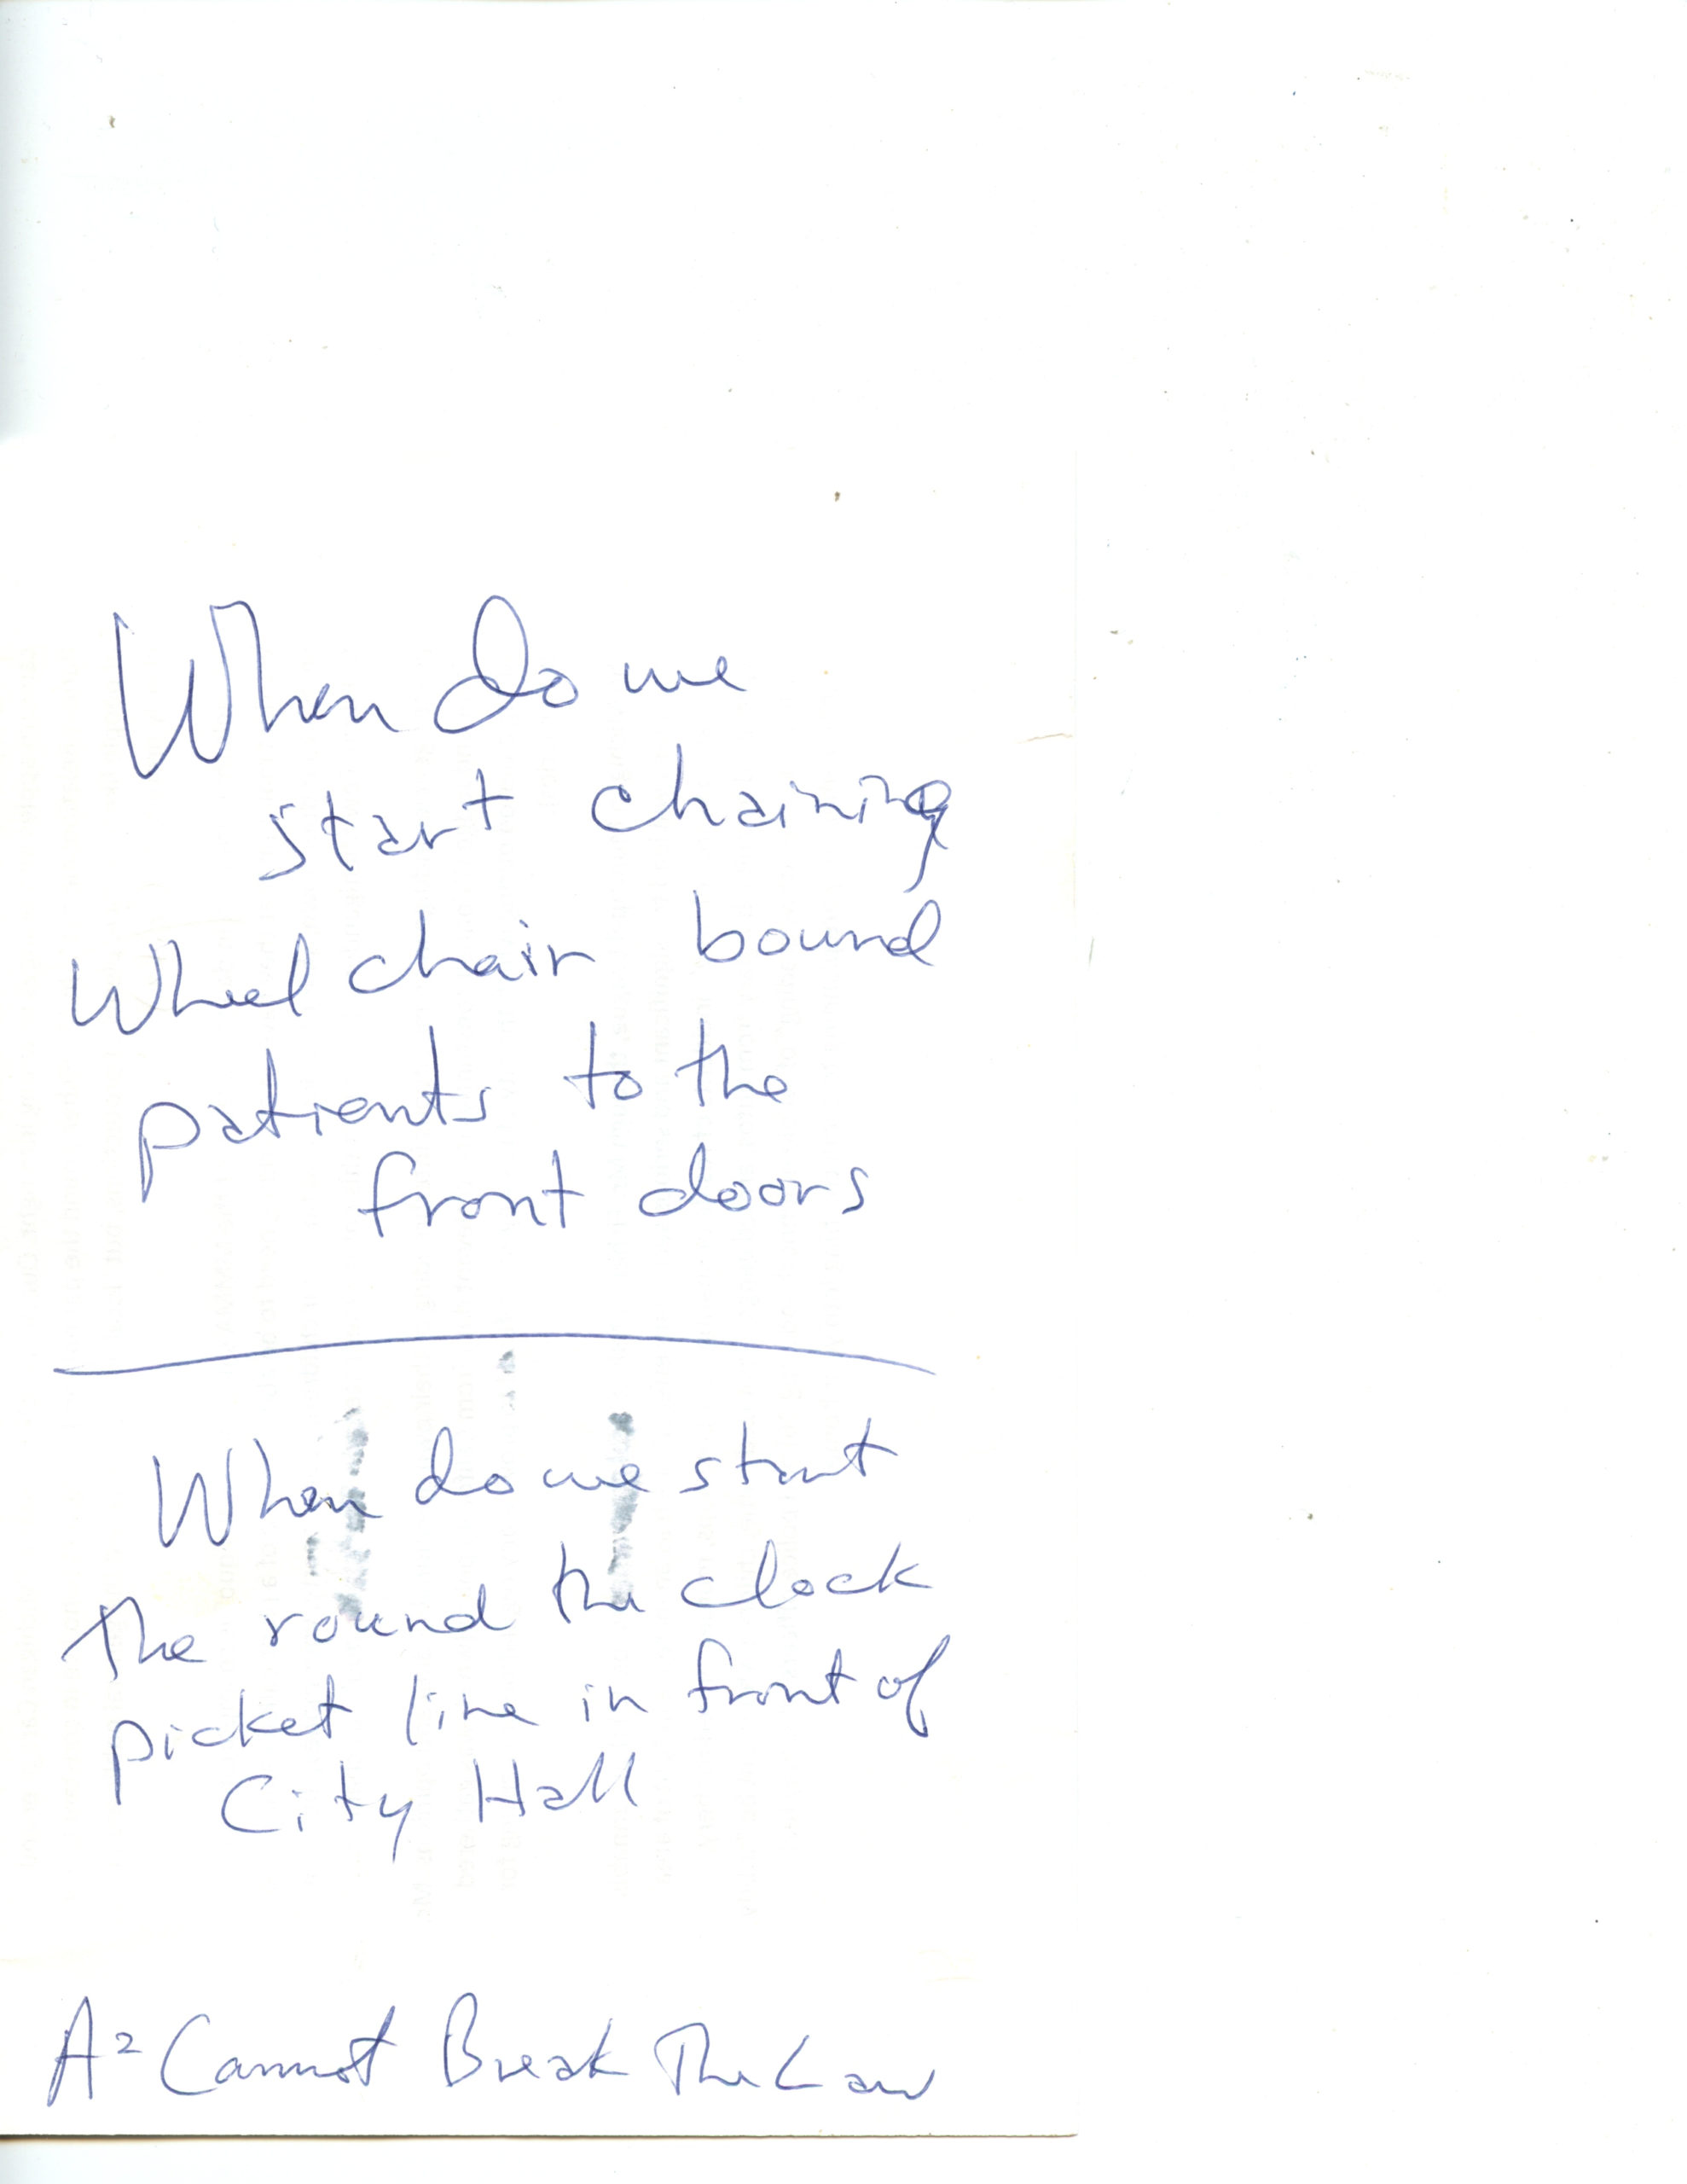 When do we
start chaining
Wheel chair bound
patients to the
front doors
When do we start
the round the clock
picket line in front of
City Hall
A² Cannot Break The Law